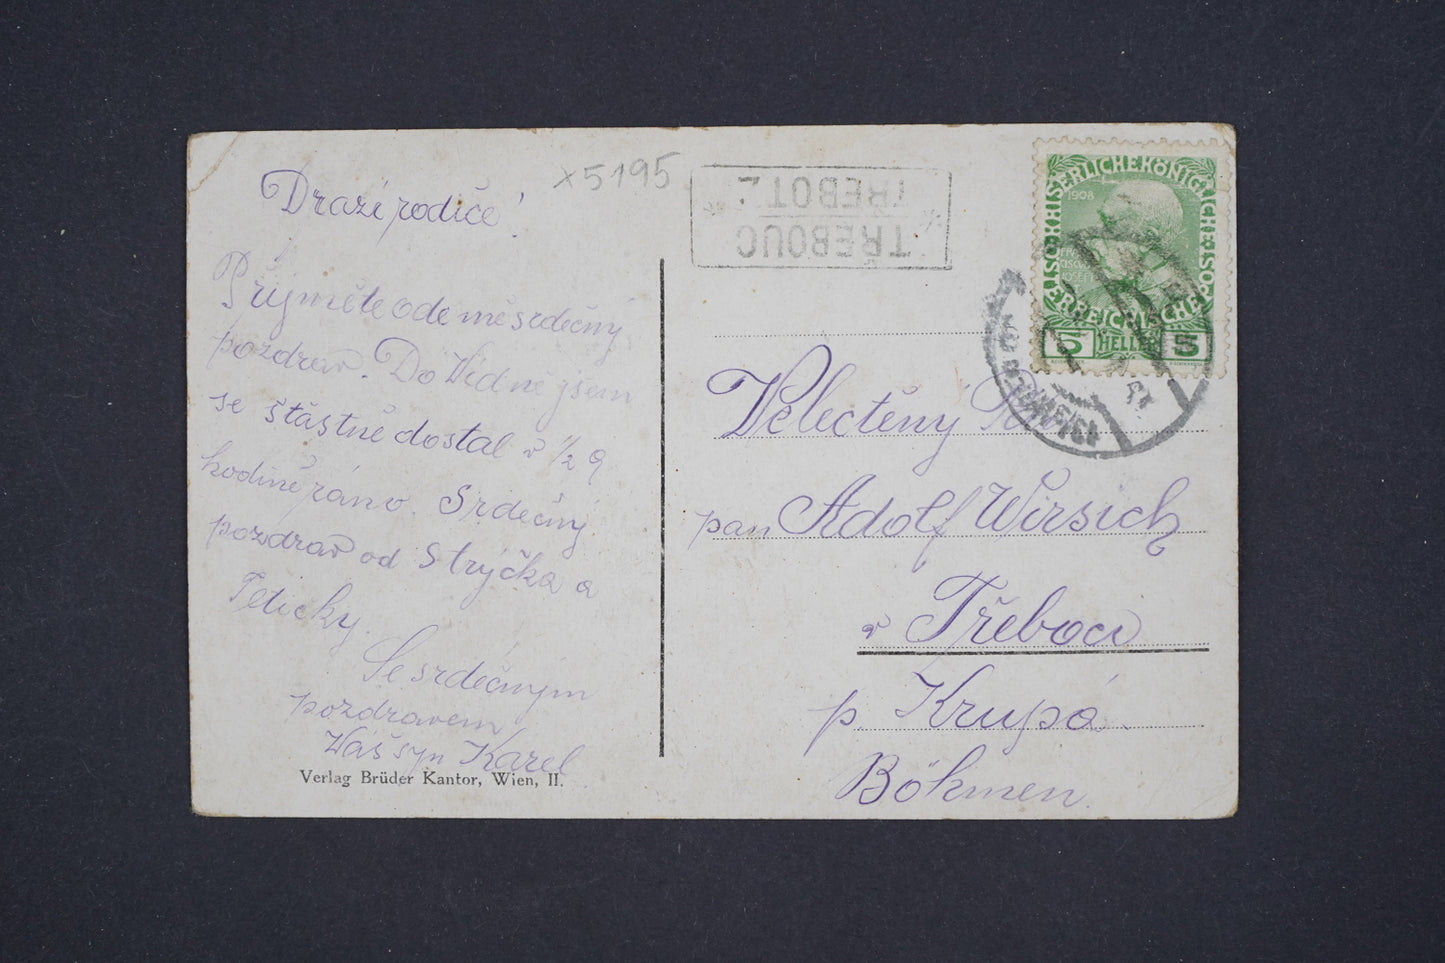 x5195
Drazí rodiče!
Přijměte ode mě srdečný
pozdrav. Do Vídně jsem
se šťastně dostal v 1/2 9
hodině ráno. Srdečný
pozdrav od Strýčka a
Tetičky.
Se srdečným
pozdravem
Váš syn Karel
Verlag Brüder Kantor, Wien, II.
TŘEBOUC
TŘEBOTZ
KAISERLICHE KÖNIGLICHE ÖSTERREICHISCHE POST
1908
5 HELLER 5
Velectěný Pan
pan Adolf Wirsich
v Třeboci
p. Krupá
Böhmen